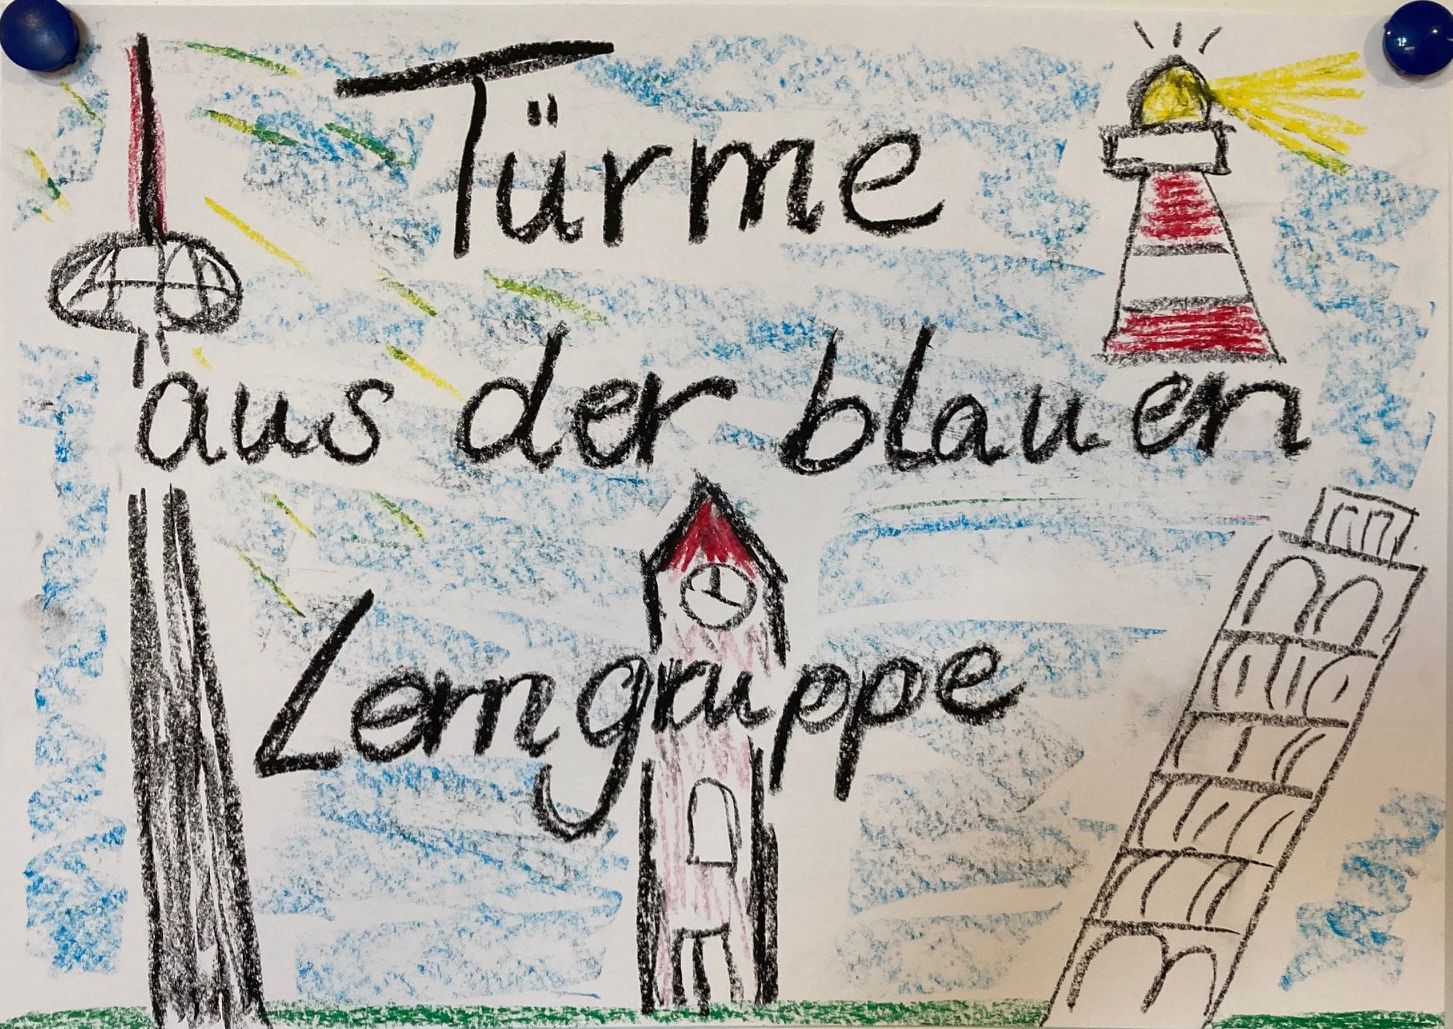 Türme
aus der blauen
Lerngruppe